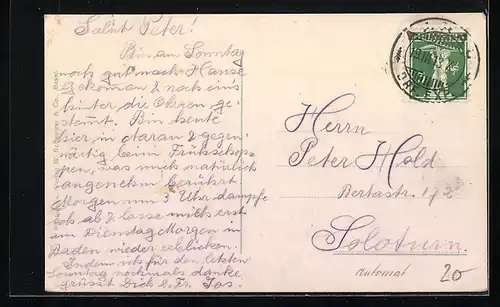 Salut Peter!
Bin am Sonntag
noch gut nach Hause
gekomen & noch eins
hinter die Ohren ge-
stemt. Bin heute
hier in Aarau & gegen-
wärtig beim Frühschop-
pen, was mich natürlich
angenehm berührt
Morgen um 3 Uhr dampfe
ich ab & lasse mich erst
am Dienstag Morgen in
Baden wieder erblicken.
Indem ich für den letzten
Sonntag nochmals danke
grüsst Dich Fr. Jos.
Herrn
Peter Hold
Bertastr.
Soloturn.
Automat
20